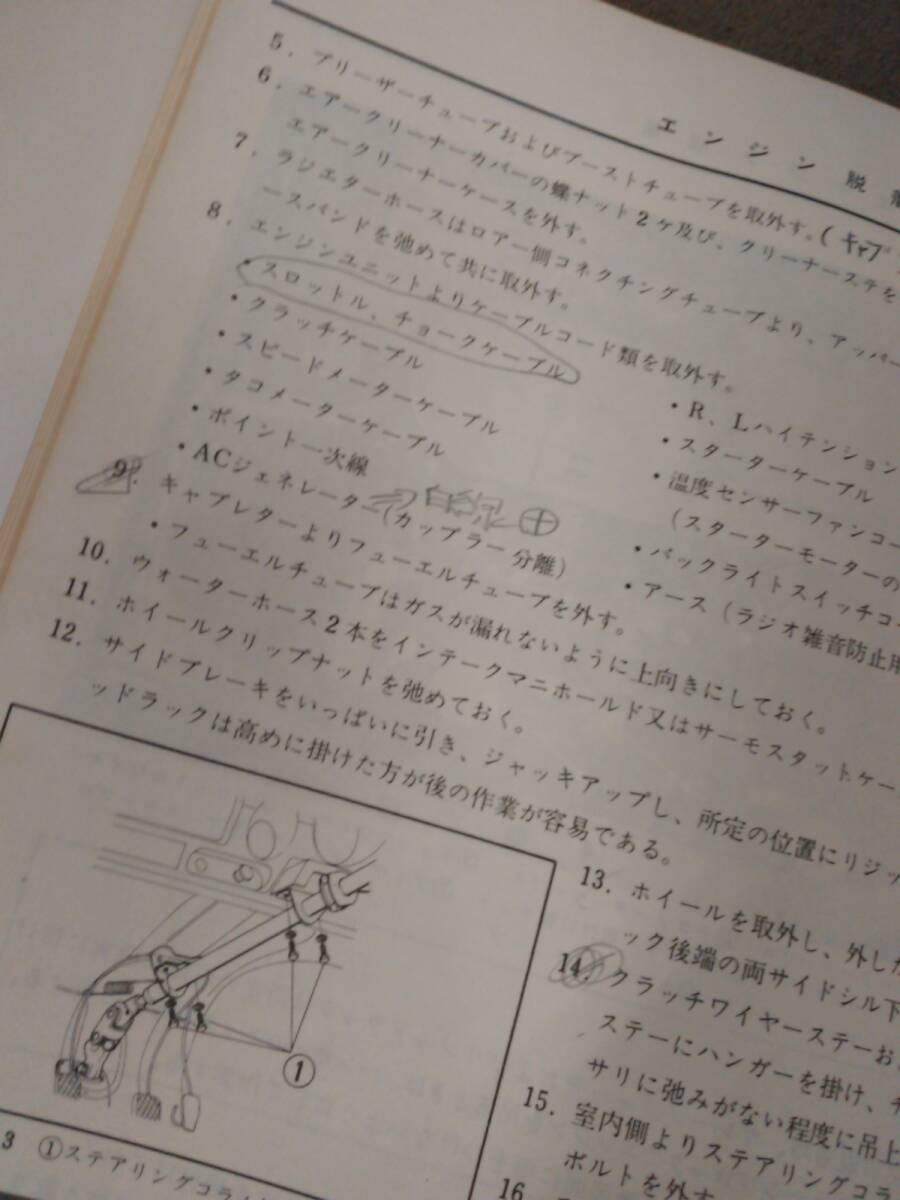 エンジン脱
5. ブリーザーチューブおよびブーストチューブを取外す。(キャブ
6. エアークリーナーカバーの蝶ナット2ケ及び、クリーナーステを
エアークリーナーケースを外す。
7. ラジエターホースはロアー側コネクチングチューブより、アッパー
ースバンドを弛めて共に取外す。
8. エンジンユニットよりケーブルコード類を取外す。
・スロットル、チョークケーブル
・クラッチケーブル
・スピードメーターケーブル
・タコメーターケーブル
・ポイント一次線
・ACジェネレーター(カップラー分離)
・R、Lハイテンション
・スターターケーブル
・温度センサーファンコー
(スターターモーターの
・バックライトスイッチコー
・アース(ラジオ雑音防止用
9. キャブレターよりフューエルチューブを外す。
・フューエルチューブはガスが漏れないように上向きにしておく。
10. ウォーターホース2本をインテークマニホールド又はサーモスタットケー
11. ホイールクリップナットを弛めておく。
12. サイドブレーキをいっぱいに引き、ジャッキアップし、所定の位置にリジッ
ッドラックは高めに掛けた方が後の作業が容易である。
①
3 ①ステアリングコラム
13. ホイールを取外し、外した
ック後端の両サイドシル下
14. クラッチワイヤーステーお
ステーにハンガーを掛け、チ
サリに弛みがない程度に吊上
15. 室内側よりステアリングコラ
ボルトを外す。
16